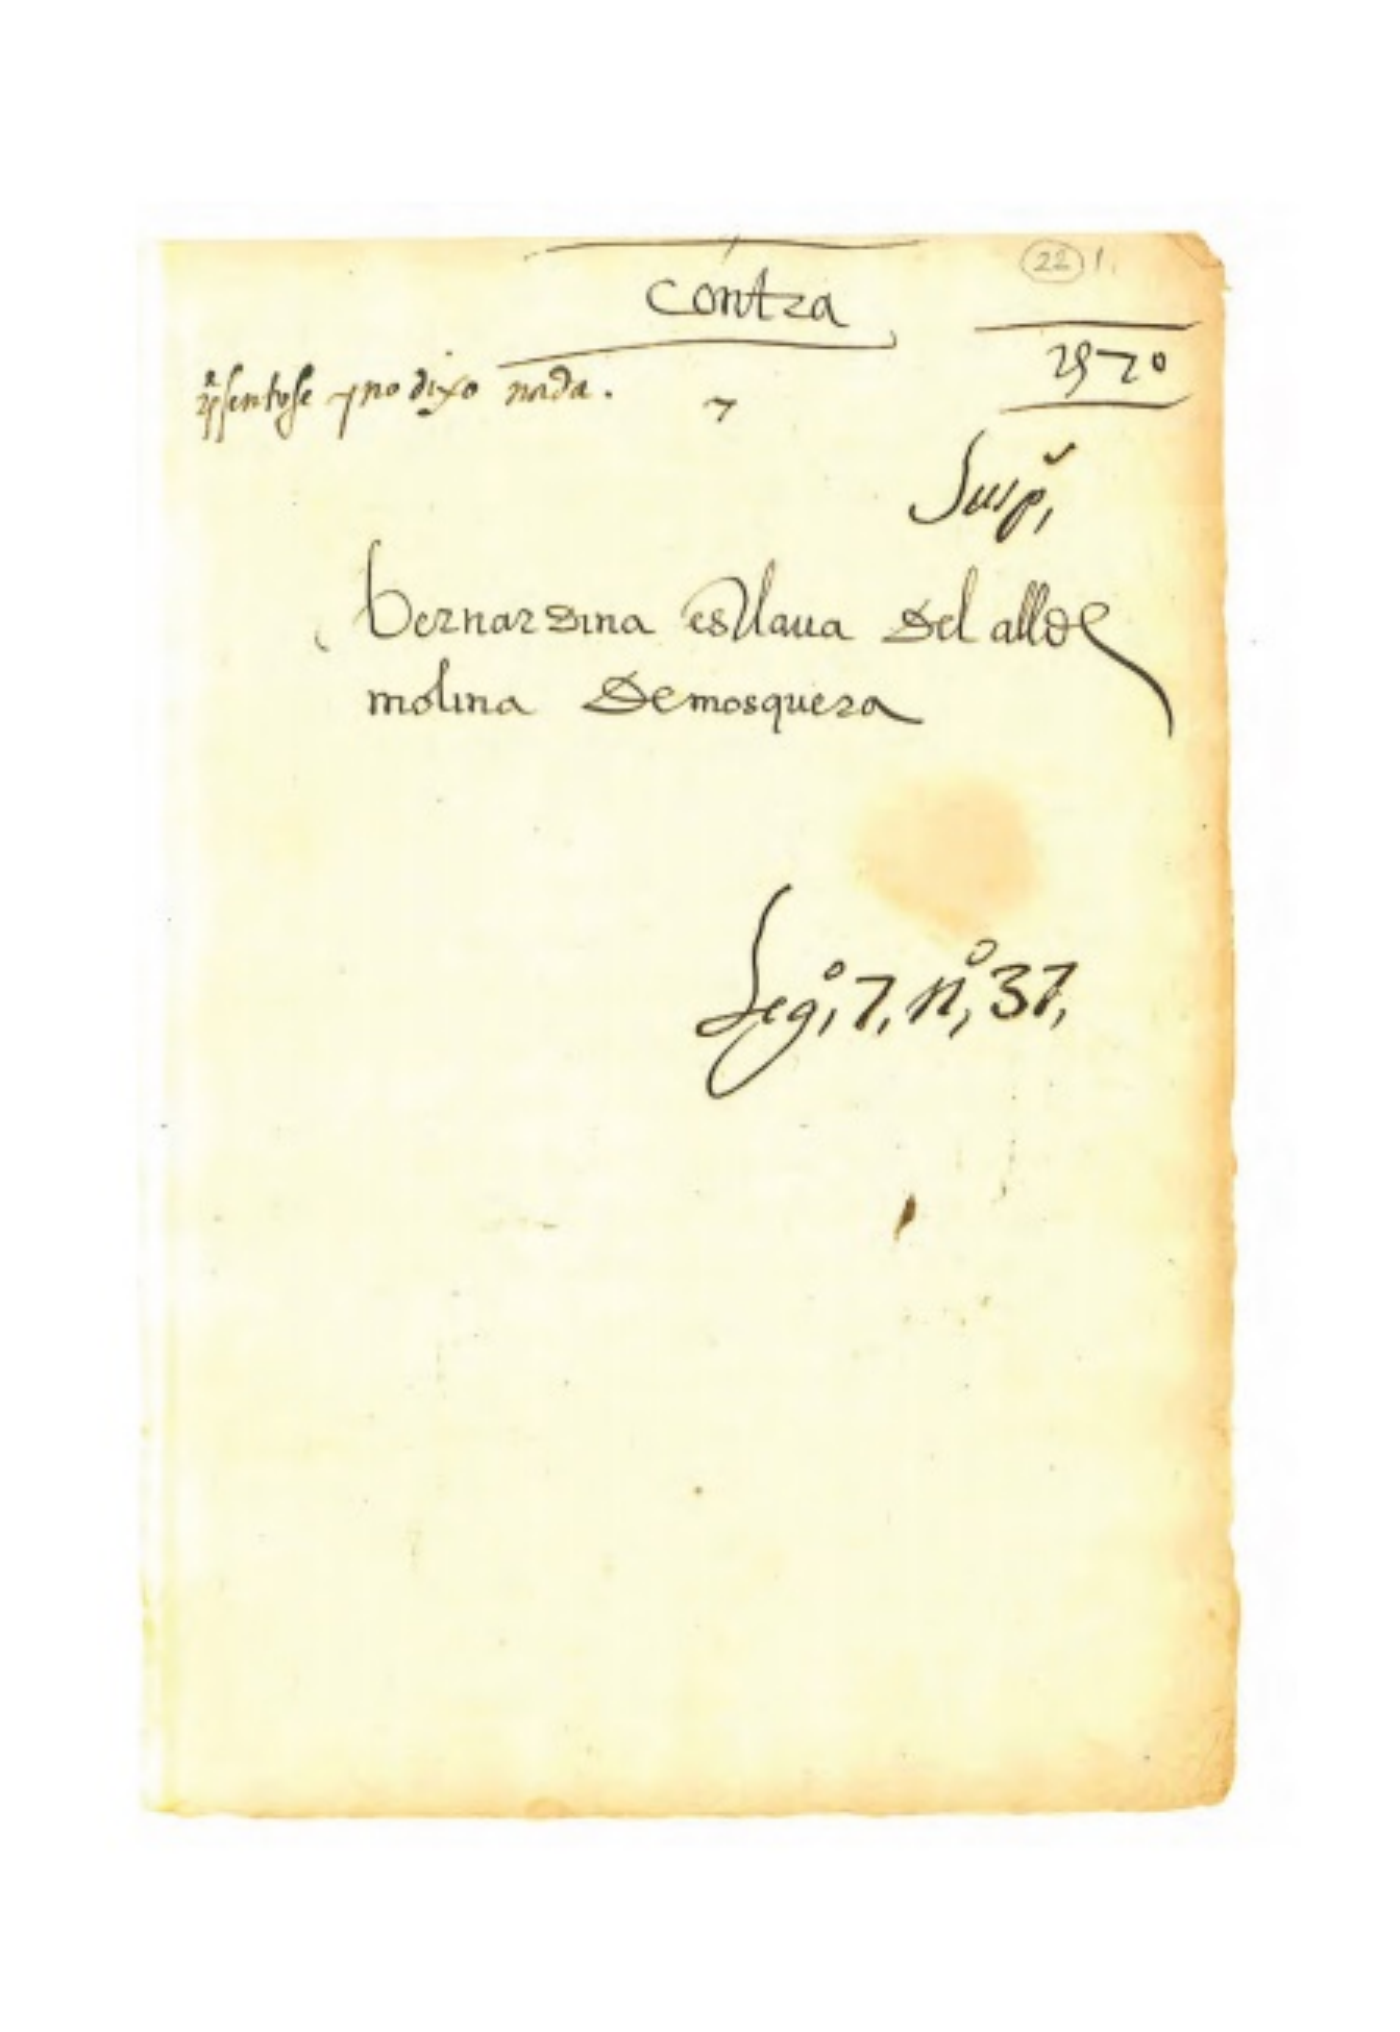 22 1
contra
1570
presentose y no dixo nada.
Susp,
bernardina esclaua del allde
molina de mosquera
Leg,º 7, nº, 37,